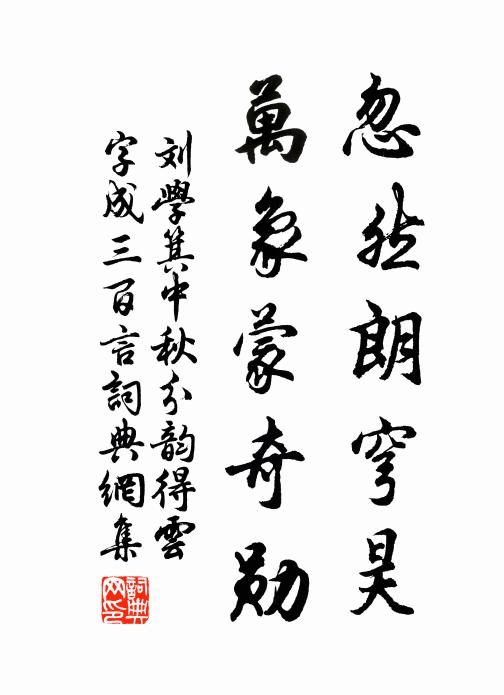 忽然朗穹昊
萬象蒙奇勛
刘學箕中秋分韵得雲
字成三百言詞典網集
詞典網印